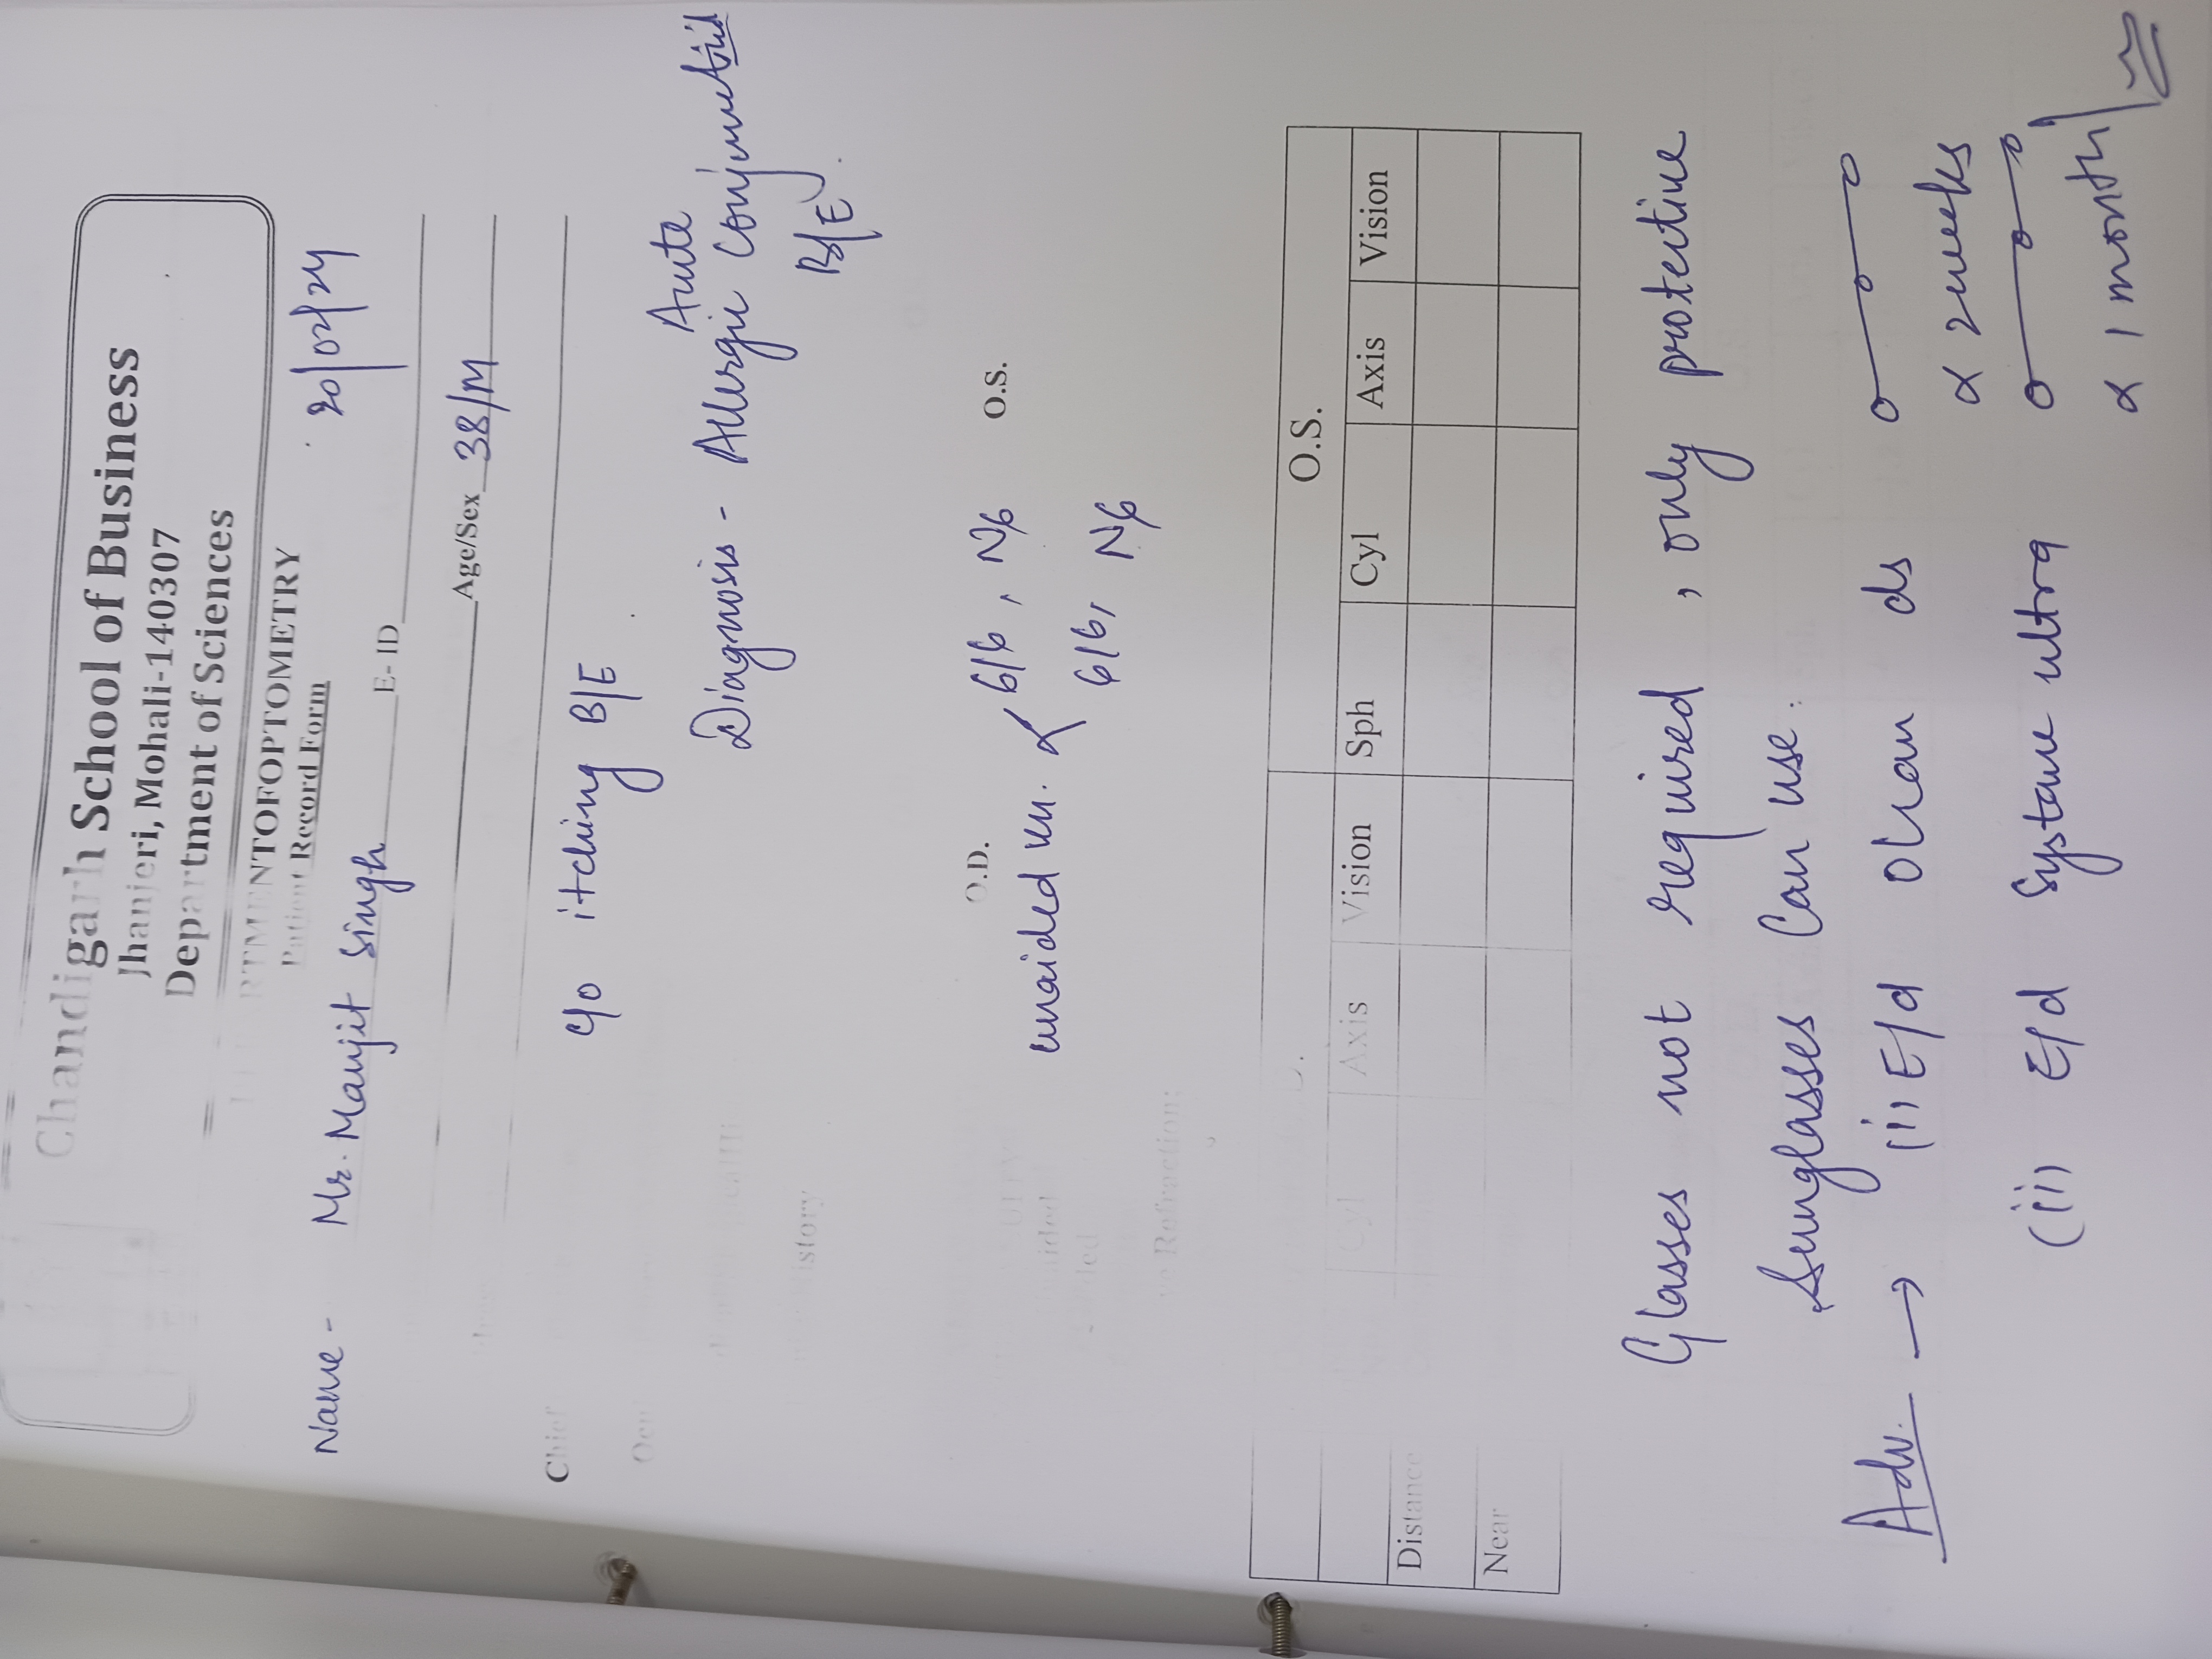 Chandigarh School of Business
Jhanjeri, Mohali-140307
Department of Sciences
DEPARTMENTOFOPTOMETRY
Patient Record Form
20/02/24
Name - Mr. Manjit Singh E- ID
Age/Sex 38/M
Chief
c/o itching B/E
Acute
Diagnosis - Allergic Conjunctivitis
B/E
History
O.D. 6/6, N6 O.S.
unaided vn.
6/6, N6
Refraction:
O.S.
Cyl Axis Vision Sph Cyl Axis Vision
Distance
Near
Glasses not required, only protective
Sunglasses Can use.
Adv. → (i) E/d ds
x 2 weeks
(ii) E/d Systane ultra
x 1 month